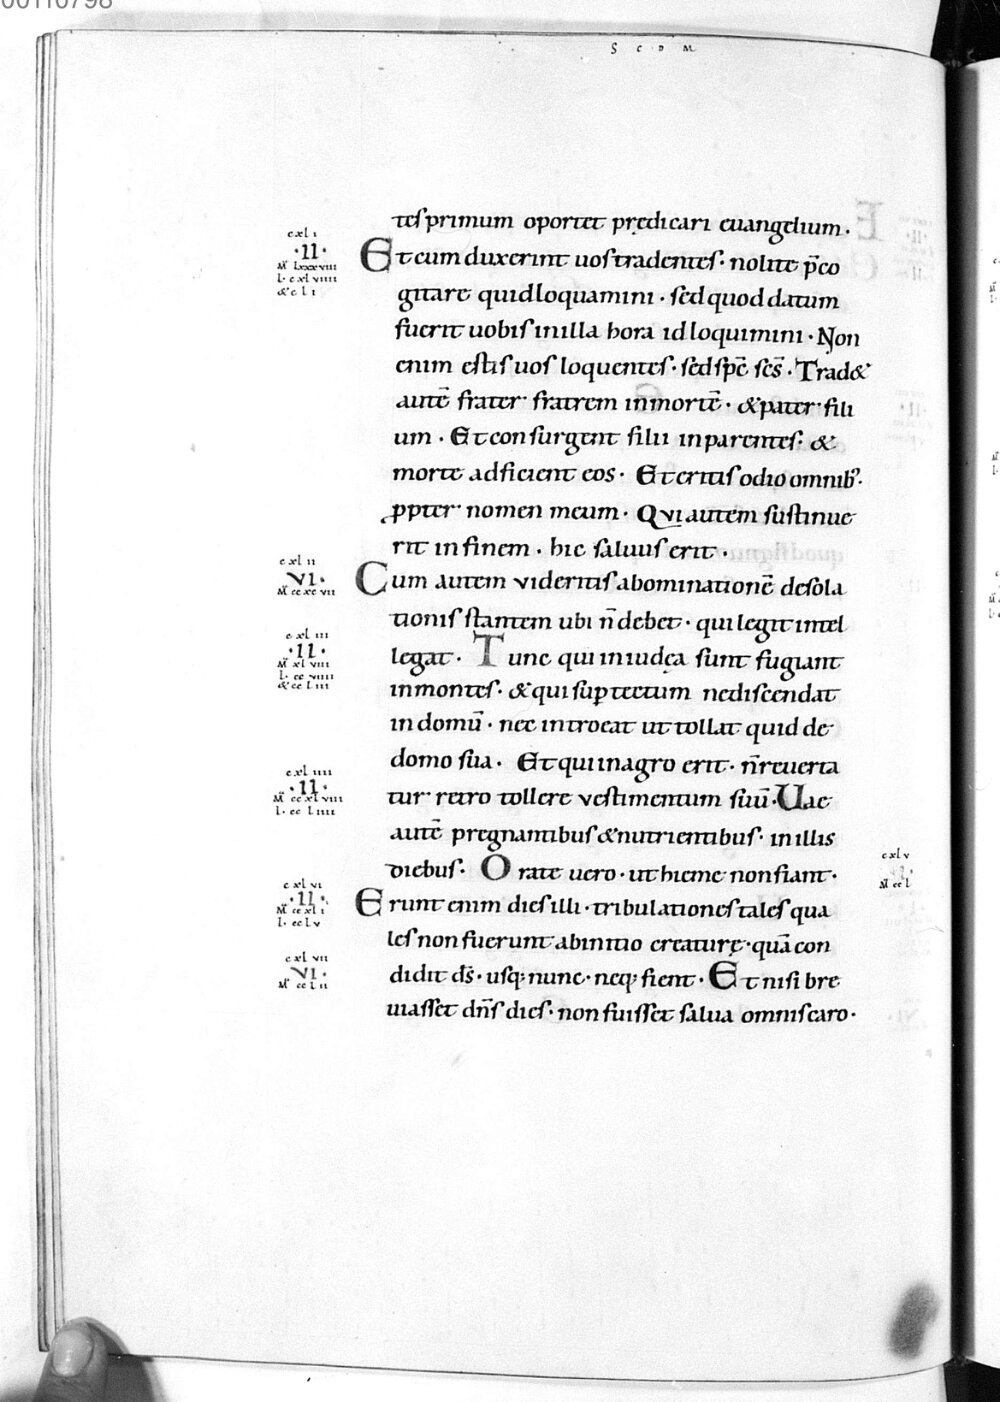 00110798
S C D M
tes primum oportet prędicari euangelium·
cxl i
·II·
M̄ lxxxviii
L· cxlviiii
& cli
Et cum duxerint uos tradentes· nolite p̄co
gitare quid loquamini· sed quod datum
fuerit uobis in illa hora id loquimini· Non
enim estis uos loquentes· sed sp̄c sc̄s· Trad&
autē frater fratrem in mortē· & pater fili
um· Et consurgent filii in parentes· &
morte adficient eos· Et eritis odio omnib;·
ꝓpter nomen meum· Qui autem sustinue
rit in finem· hic saluus erit·
cxl ii
VI·
M̄ ccxcvii
Cum autem uideritis abominationē desola
tionis stantem ubi n̄ debet· qui legit intel
cxl iii
·II·
M̄ xlviii
L· ccviiii
& cc liii
legat· Tunc qui in iudęa sunt fugiant
in montes· & qui sup tectum ne discendat
in domū· nec introeat ut tollat quid de
domo sua· Et qui in agro erit· n̄ reuerta
cxl iiii
·II·
M̄ ccxlviii
L· cc liiii
tur retro tollere uestimentum suū· Uae
autē pregnantibus & nutrientibus· in illis
diebus· Orate uero· ut hieme non fiant·
cxl v
M̄ cc l
cxl vi
·II·
M̄ ccxli
L· cc lv
Erunt enim dies illi· tribulationes tales qua
les non fuerunt ab initio creaturę· quā con
cxl vii
VI·
M̄ cc lii
didit dś· usq; nunc· neq; fient· Et nisi bre
uiasset dn̄s dies· non fuisset salua omnis caro·